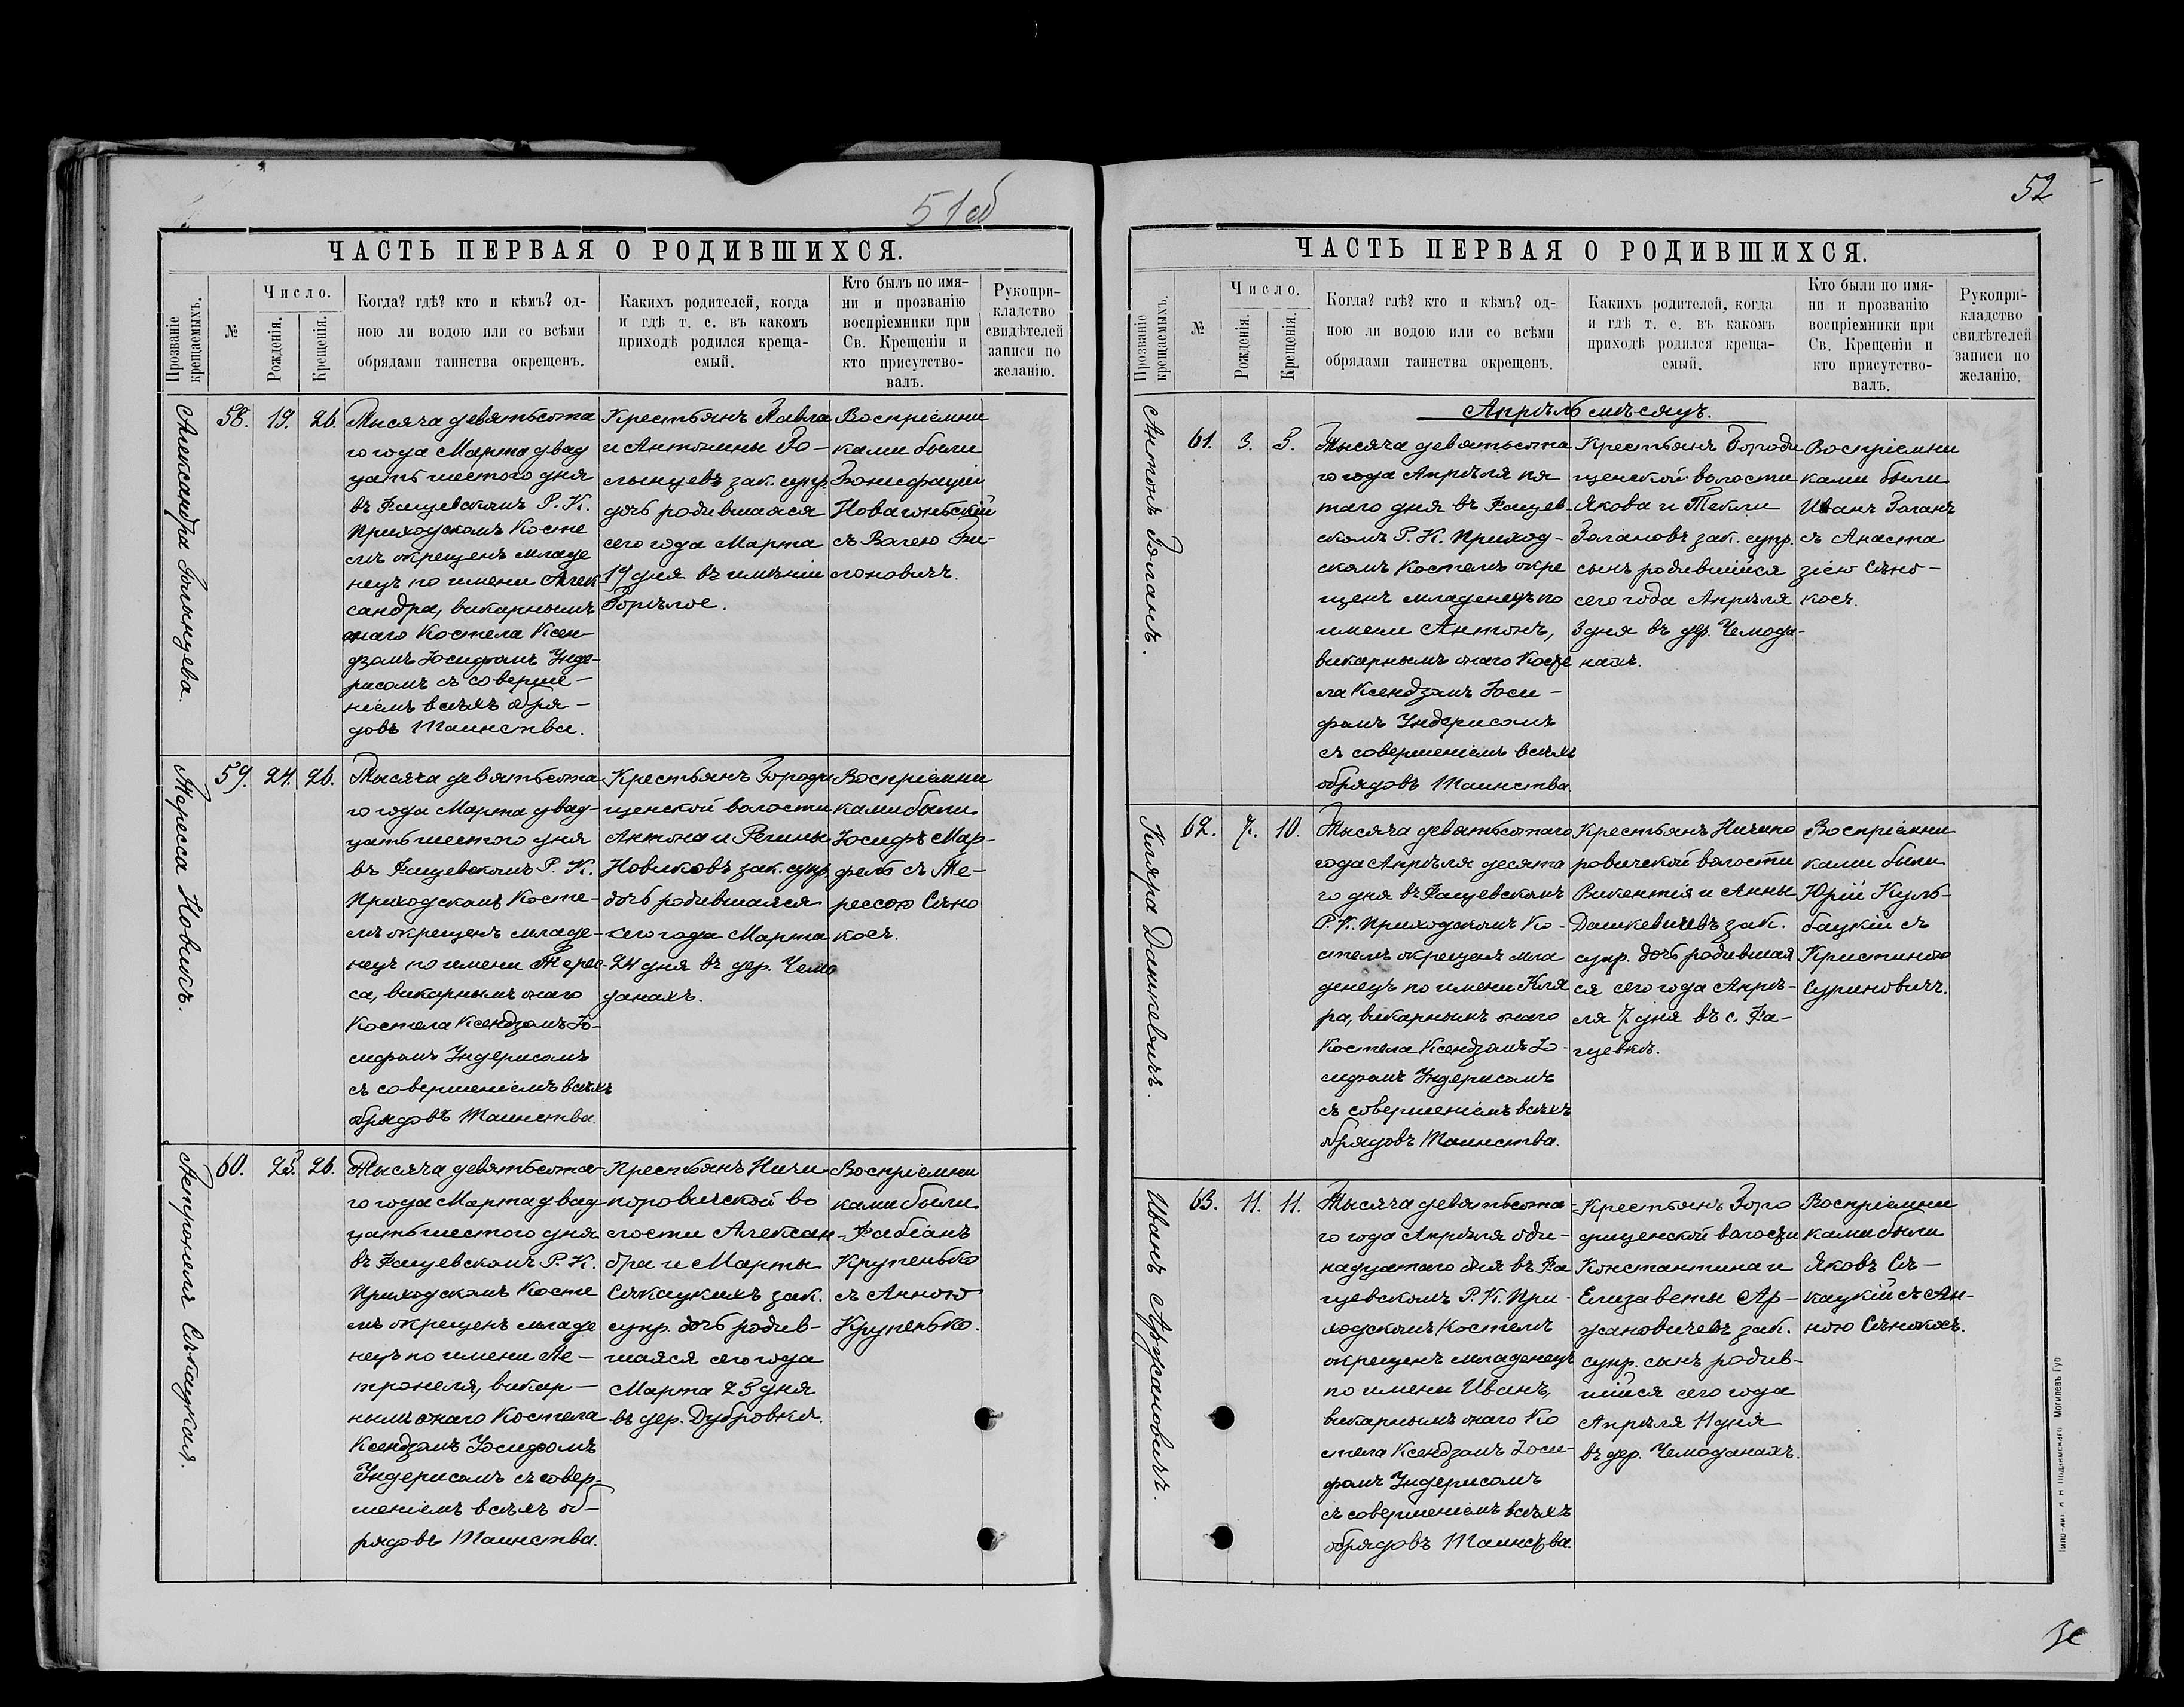 51об
ЧАСТЬ ПЕРВАЯ О РОДИВШИХСЯ.
Прозваніе
крестившихся.
№
Число.
Рожденія.
Крещенія.
Когда? гдѣ? кто и кѣмъ? од-
ною ли водою или со всѣми
обрядами таинства окрещенъ.
Какихъ родителей, когда
и гдѣ т. е. въ какомъ
приходѣ родился креща-
емый.
Кто былъ по имя-
ни и прозванію
воспріемники при
Св. Крещеніи и
кто присутство-
валъ.
Рукопри-
кладство
свидѣтелей
записи по
желанію.
Александра Голынцева.
58. 19. 26.
Тысяча девятьсота
го года Марта двад
цать шестого дня
въ Фащевскомъ Р. К.
Приходскомъ Косте
лѣ окрещенъ младе
нецъ по имени Алек-
сандра, викарнымъ
онаго Костела Ксен-
дзомъ Іосифомъ Инде-
рисомъ съ соверше-
ніемъ всѣхъ обря-
довъ Таинства.
Крестьянъ Павла
и Антонины Го-
лынцевъ зак. супр.
дочь родившаяся
сего года Марта
19 дня въ имѣніи
Горѣлое.
Воспріемни
ками были
Бонифацій
съ
Тереса Новикъ.
59. 24. 26.
Тысяча девятьсота
го года Марта двад-
цать шестого дня
въ Фащевскомъ Р. К.
Приходскомъ Косте-
лѣ окрещенъ младе-
нецъ по имени Тере-
са, викарнымъ онаго
Костела Ксендзомъ Іо-
сифомъ Индерисомъ
съ совершеніемъ всѣхъ
обрядовъ Таинства.
Крестьянъ Городи
щенской волости
Антона и Регины
Новиковъ зак. супр.
дочь родившаяся
сего года Марта
24 дня въ дер. Чемо
данахъ.
Воспріемни
ками были
Іосифъ Мар-
фель съ Те-
рессою Сѣно
косъ.
Петронеля Сѣкацкая.
60. 23. 26.
Тысяча девятьсота-
го года Марта двад
цать шестого дня
въ Фащевскомъ Р. К.
Приходскомъ Косте
лѣ окрещенъ младе
нецъ по имени Пе-
тронеля, викар-
нымъ онаго Костела
Ксендзомъ Іосифомъ
Индерисомъ съ совер-
шеніемъ всѣхъ об-
рядовъ Таинства.
Крестьянъ Ничи
поровичской во
лости Алексан-
дра и Марты
Сѣкацкихъ зак.
супр. дочь родив-
шаяся сего года
Марта 23 дня
въ дер. Дубровкѣ.
Воспріемни
ками были
Фабіанъ
Крупенько
съ Анною
Крупенько.
52
ЧАСТЬ ПЕРВАЯ О РОДИВШИХСЯ.
Прозваніе
крестившихся.
№
Число.
Рожденія.
Крещенія.
Когда? гдѣ? кто и кѣмъ? од-
ною ли водою или со всѣми
обрядами таинства окрещенъ.
Какихъ родителей, когда
и гдѣ т. е. въ какомъ
приходѣ родился креща-
емый.
Кто были по имя-
ни и прозванію
воспріемники при
Св. Крещеніи и
кто присутство-
валъ.
Рукопри-
кладство
свидѣтелей
записи по
желанію.
Апрѣль мѣсяцъ.
Антонъ Голанъ.
61. 3. 5.
Тысяча девятьсота
го года Апрѣля пя
таго дня въ Фащев-
скомъ Р. К. Приход-
скомъ Костелѣ окре
щенъ младенецъ по
имени Антонъ,
викарнымъ онаго Косте
ла Ксендзомъ Іоси-
фомъ Индерисомъ
съ совершеніемъ всѣхъ
обрядовъ Таинства
Крестьянъ Городи
щенской волости
Якова и Текли
Голановъ зак. супр.
сынъ родившійся
сего года Апрѣля
3 дня въ дер. Чемода-
нахъ.
Воспріемни
ками были
Иванъ Голанъ
съ Анаста
зіею Сѣно-
косъ.
Кляра Дашкевичъ.
62. 7. 10.
Тысяча девятьсотаго
года Апрѣля десята
го дня въ Фащевскомъ
Р. К. Приходскомъ Ко-
стелѣ окрещенъ мла
денецъ по имени Кля
ра, викарнымъ онаго
Костела Ксендзомъ Іо-
сифомъ Индерисомъ
съ совершеніемъ всѣхъ
обрядовъ Таинства.
Крестьянъ Ничипо
ровичской волости
Викентія и Анны
Дашкевичевъ зак.
супр. дочь родившая
ся сего года Апрѣ-
ля 7 дня въ с. Фа-
щевкѣ.
Воспріемни
ками были
Юрій Куль-
бацкій съ
Кристиною
Суриновичъ.
Иванъ Аржановичъ.
63. 11. 11.
Тысяча девятьсота-
го года Апрѣля оди-
надцатаго дня въ Фа
щевскомъ Р. К. При
ходскомъ Костелѣ
окрещенъ младенецъ
по имени Иванъ,
викарнымъ онаго Ко
стела Ксендзомъ Іоси-
фомъ Индерисомъ
съ совершеніемъ всѣхъ
обрядовъ Таинства
Крестьянъ Горо
дищенской волости
Константина и
Елизаветы Ар-
жановичевъ зак.
супр. сынъ родив-
шійся сего года
Апрѣля 11 дня
въ дер. Чемоданахъ.
Воспріемни
ками были
Яковъ Сѣ-
кацкій съ Ан-
ною Сѣнокосъ.
Могилевъ Губ